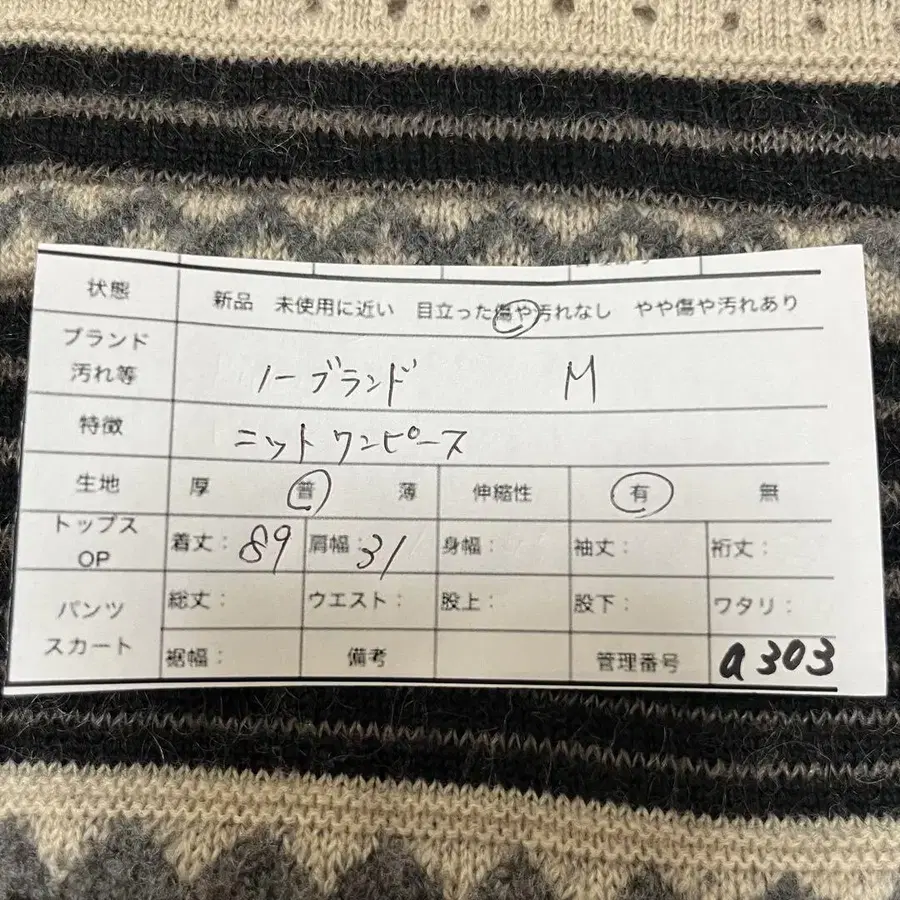 状態 新品 未使用に近い 目立った傷や汚れなし やや傷や汚れあり
ブランド
汚れ等 ノーブランド M
特徴 ニットワンピース
生地 厚 普 薄 伸縮性 有 無
トップス
OP 着丈: 89 肩幅: 31 身幅: 袖丈: 裄丈:
パンツ
スカート 総丈: ウエスト: 股上: 股下: ワタリ:
裾幅: 備考 管理番号 a303